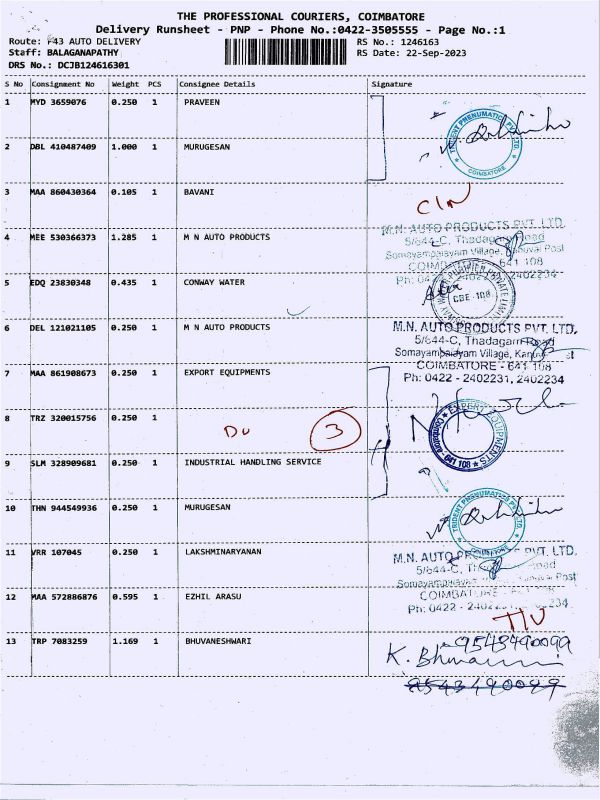 THE PROFESSIONAL COURIERS, COIMBATORE
Delivery Runsheet - PNP - Phone No.:0422-3505555 - Page No.:1
Route: F43 AUTO DELIVERY RS No.: 1246163
Staff: BALAGANAPATHY RS Date: 22-Sep-2023
DRS No.: DCJB124616301
S No Consignment No Weight PCS Consignee Details Signature
1 MYD 3659076 0.250 1 PRAVEEN
TRIDENT PNEUMATICS PVT. LTD. COIMBATORE
2 DBL 410487409 1.000 1 MURUGESAN
3 MAA 860430364 0.105 1 BAVANI
M.N. AUTO PRODUCTS PVT. LTD.
4 MEE 530366373 1.285 1 M N AUTO PRODUCTS 5/644-C, Thadagam Road
Somayampalayam Village, Kanuvai Post
641 108
Ph: 0422 2402234
5 EDQ 23830348 0.435 1 CONWAY WATER
CBE-108
6 DEL 121021105 0.250 1 M N AUTO PRODUCTS M.N. AUTO PRODUCTS PVT. LTD.
5/644-C, Thadagam Road
Somayampalayam Village,
7 MAA 861908673 0.250 1 EXPORT EQUIPMENTS COIMBATORE - 641 108
Ph: 0422 - 2402231, 2402234
8 TRZ 320015756 0.250 1
DU 3
EXPORT EQUIPMENTS Coimbatore 641 108
9 SLM 328909681 0.250 1 INDUSTRIAL HANDLING SERVICE
10 THN 944549936 0.250 1 MURUGESAN
TRIDENT PNEUMATICS PVT. LTD. COIMBATORE
11 VRR 107045 0.250 1 LAKSHMINARYANAN M.N. AUTO PVT. LTD.
5/644-C,
Post
12 MAA 572886876 0.595 1 EZHIL ARASU
Ph: 0422 -
13 TRP 7083259 1.169 1 BHUVANESHWARI 9543490099
K.
9543490099